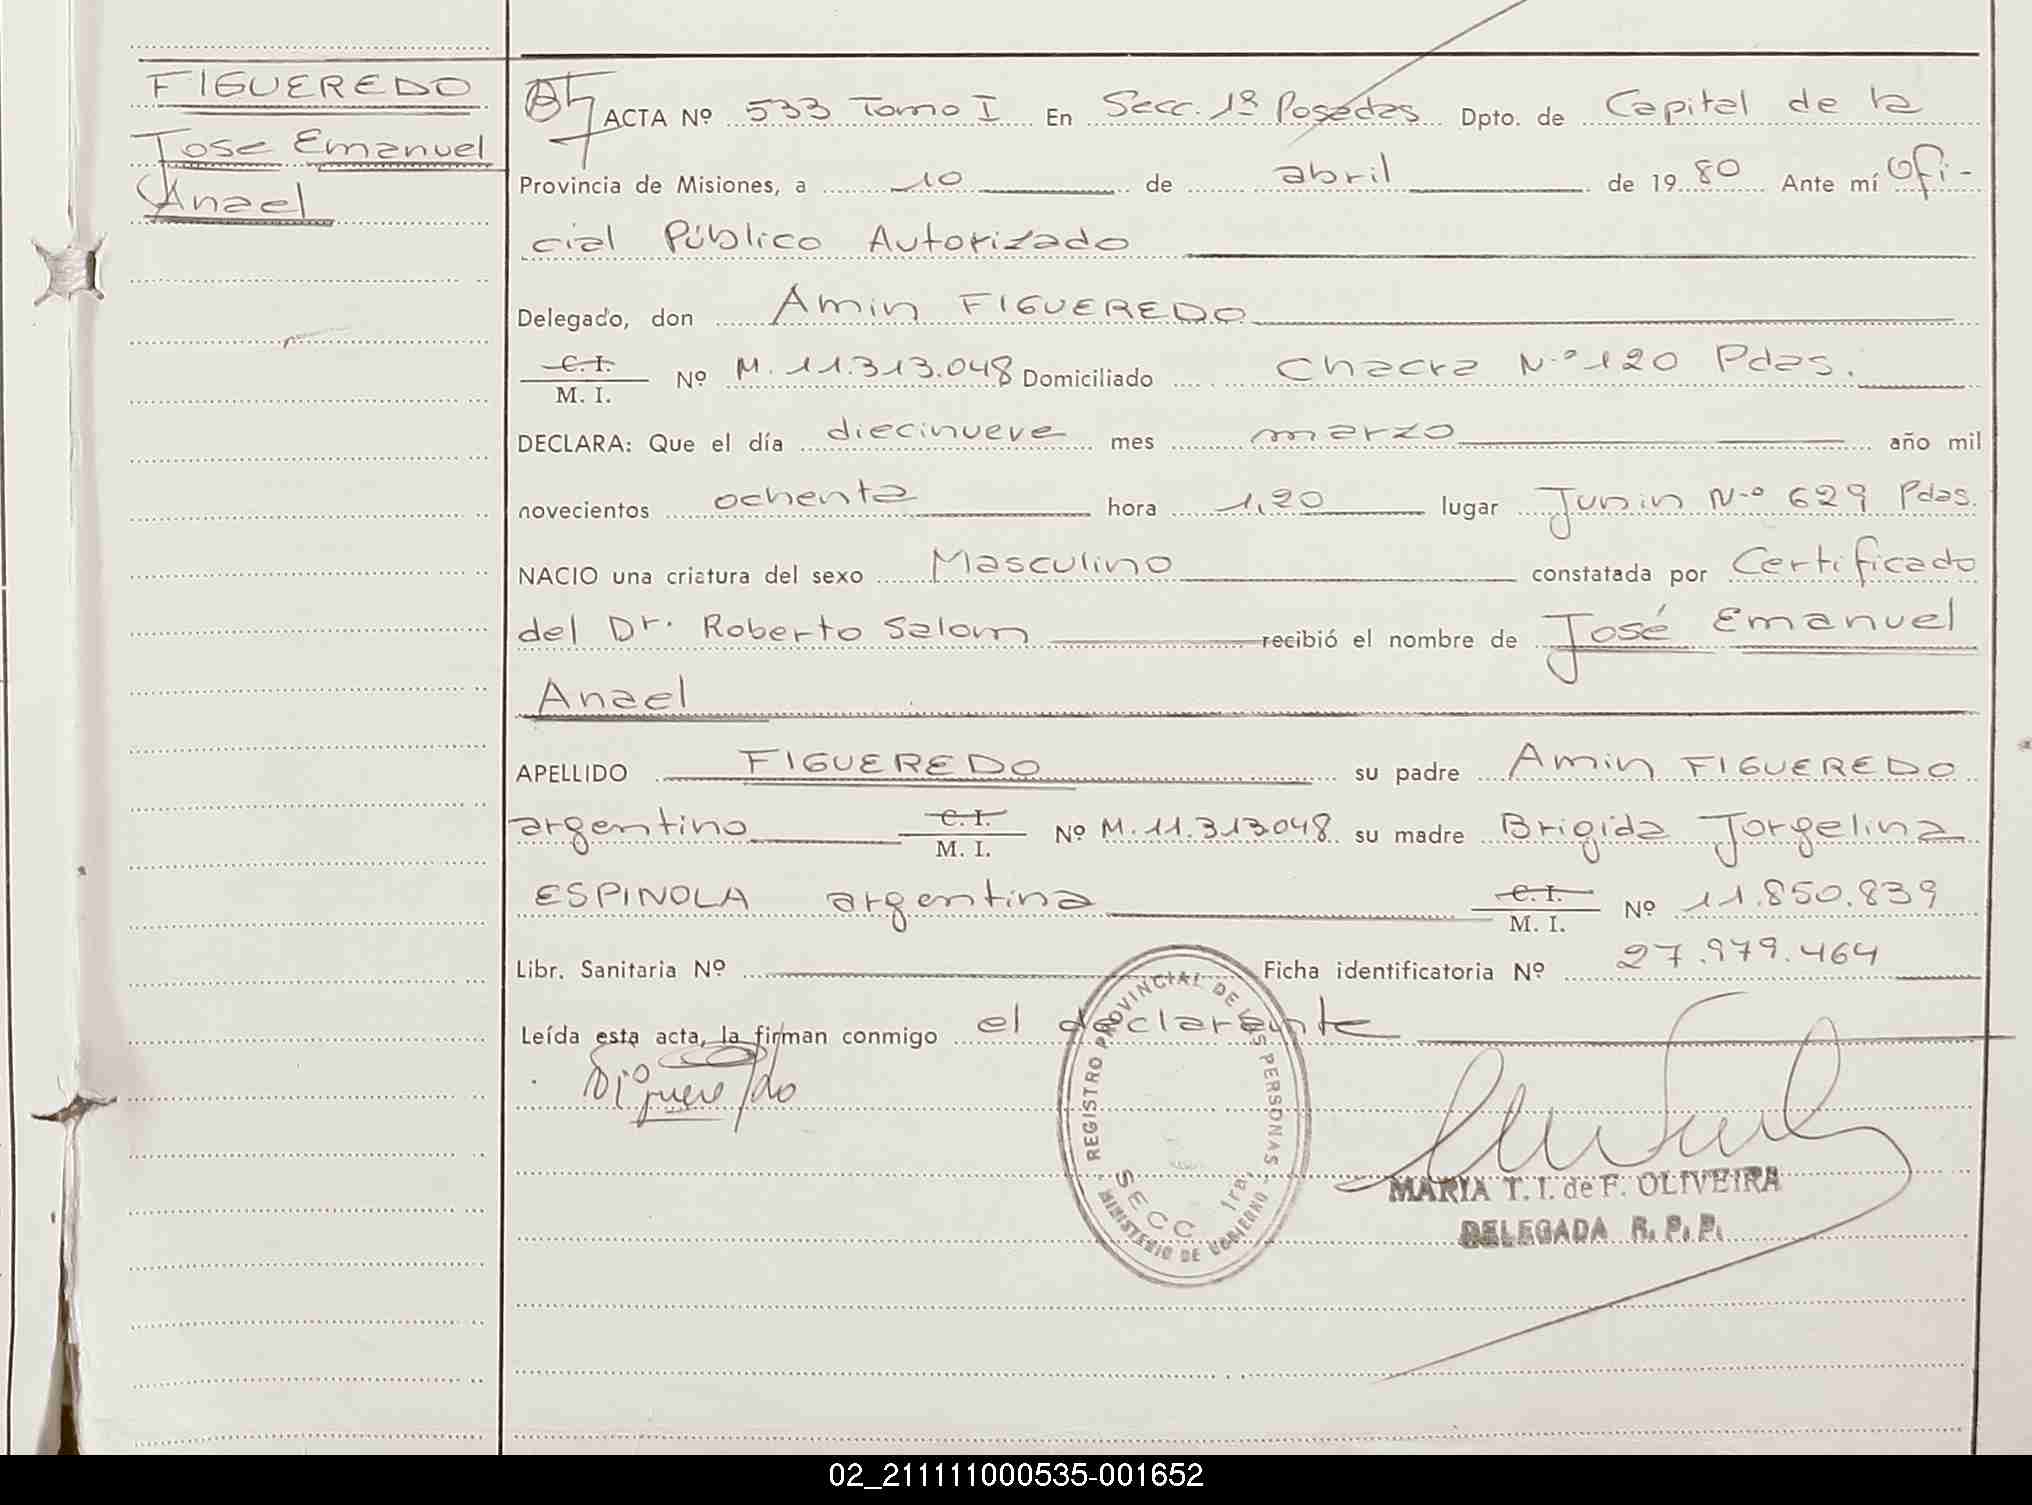 FIGUEREDO
Jose Emanuel
Anael
ACTA Nº 533 Tomo I En Secc. 1ª Posadas Dpto. de Capital de la
Provincia de Misiones, a 10 de abril de 1980 Ante mí Ofi-
cial Público Autorizado
Delegado, don Amin FIGUEREDO
C. I.
M. I. Nº M. 11.313.048 Domiciliado Chacra N.º 120 Pdas.
DECLARA: Que el día diecinueve mes marzo año mil
novecientos ochenta hora 1,20 lugar Junin N.º 629 Pdas.
NACIO una criatura del sexo Masculino constatada por Certificado
del Dr. Roberto Salom recibió el nombre de José Emanuel
Anael
APELLIDO FIGUEREDO su padre Amin FIGUEREDO
argentino C. I.
M. I. Nº M. 11.313048 su madre Brigida Jorgelina
ESPINOLA argentina C. I.
M. I. Nº 11.850.839
Libr. Sanitaria Nº Ficha identificatoria Nº 27.979.464
Leída esta acta, la firman conmigo el declarante
Figueredo
REGISTRO PROVINCIAL DE LAS PERSONAS
SECC 1ra.
MINISTERIO DE GOBIERNO
MARIA T. I. de F. OLIVEIRA
DELEGADA R. P. P.
02_211111000535-001652